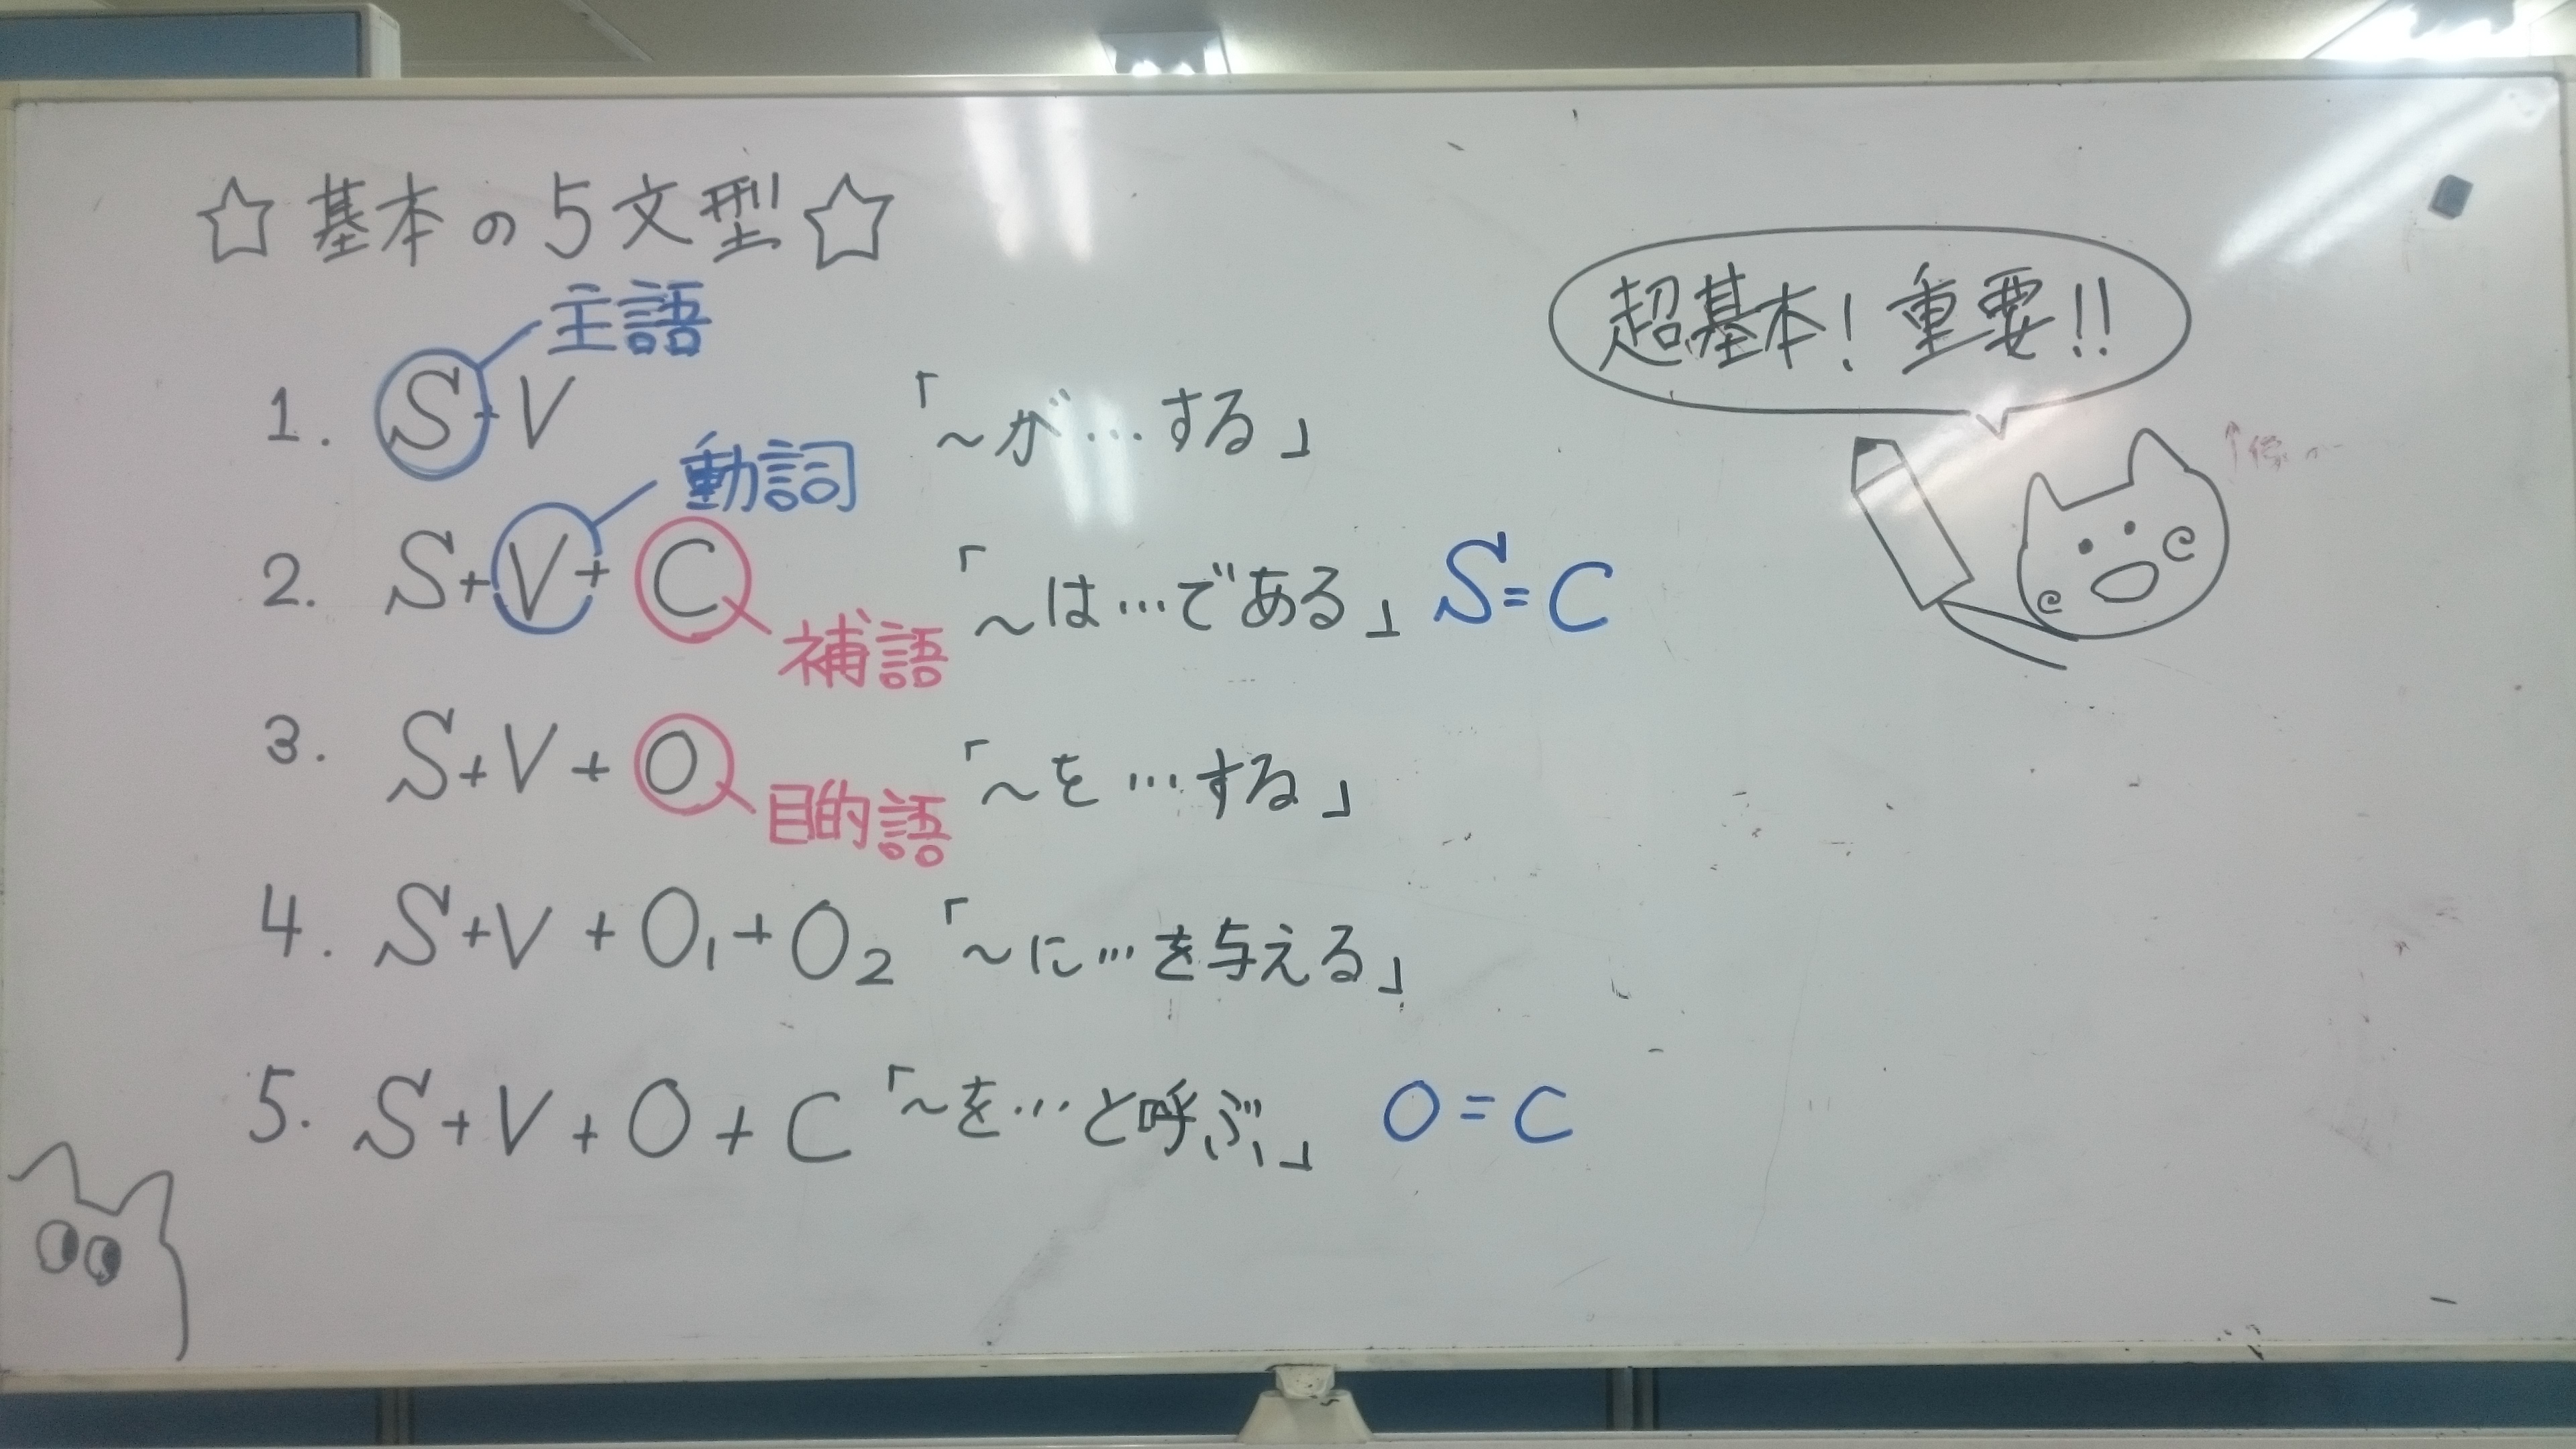 ☆基本の5文型☆
主語
1. S+V 「〜が…する」
動詞
2. S+V+C 「〜は…である」 S=C
補語
3. S+V+O 「〜を…する」
目的語
4. S+V+O₁+O₂ 「〜に…を与える」
5. S+V+O+C 「〜を…と呼ぶ」 O=C
超基本!重要!!